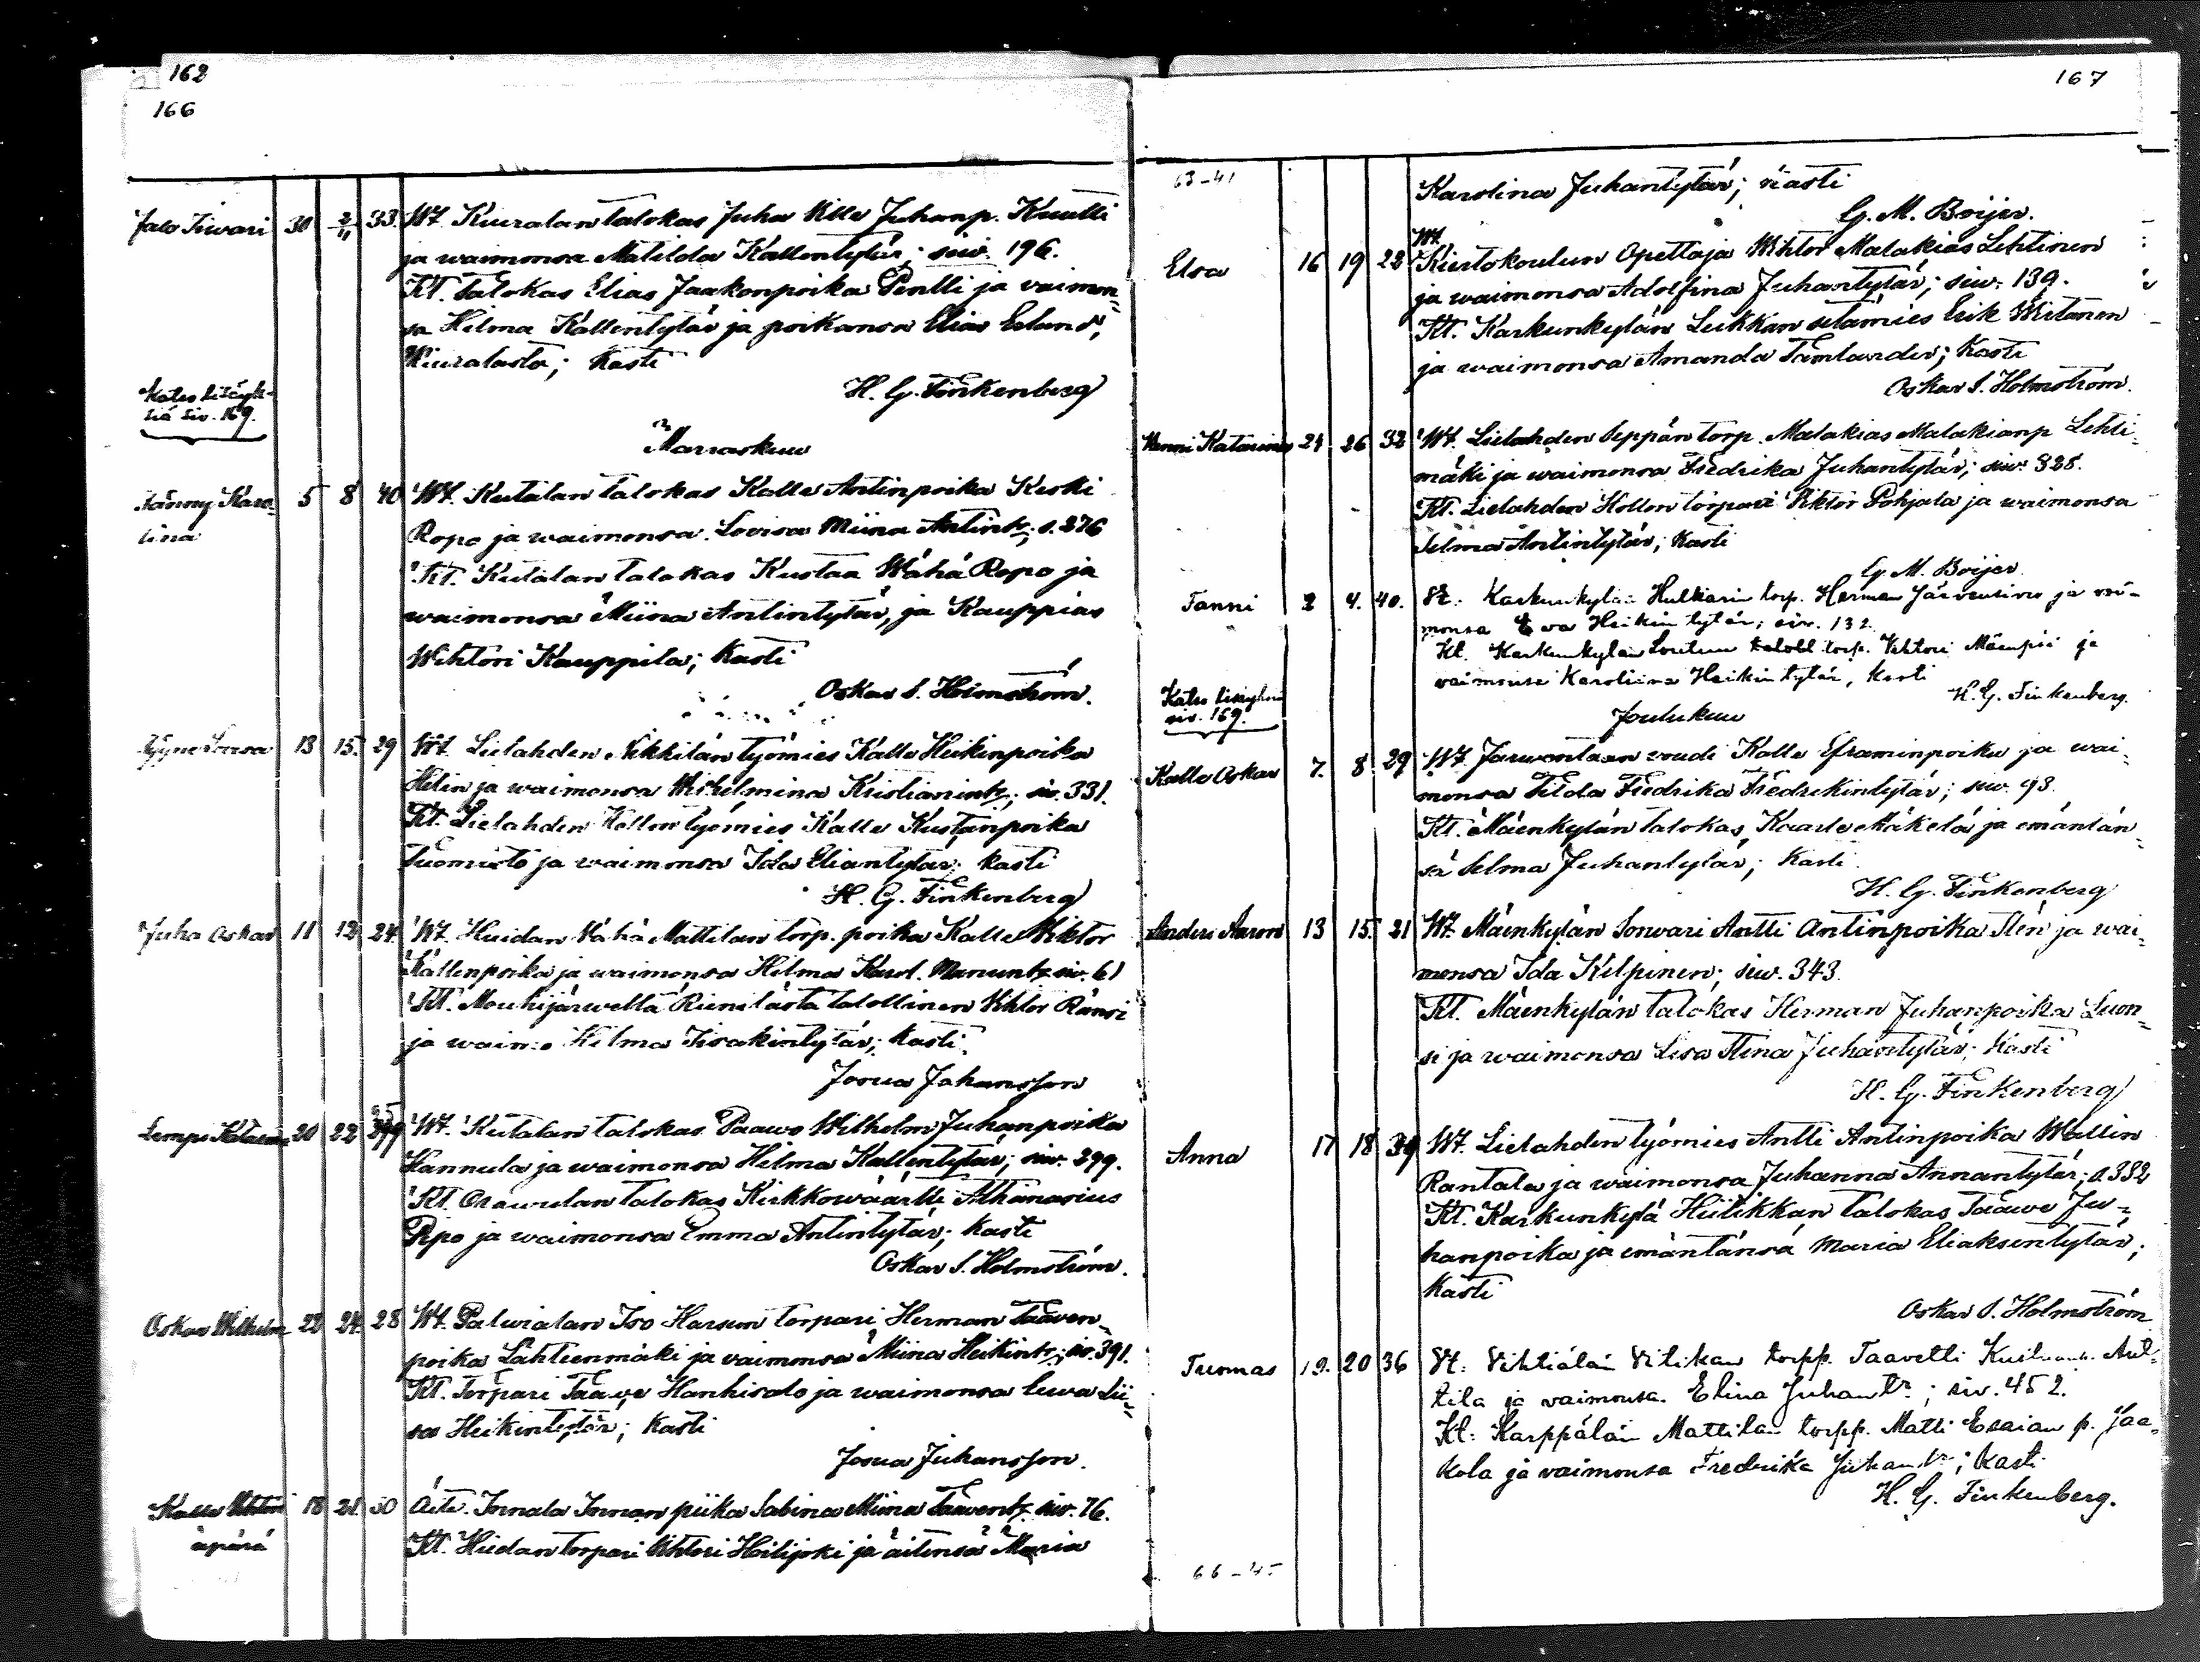 162
166
Jalo Iivari 30 2/11 33. Wt. Kiuralan talokas Juha Ville Juhanp. Knutti
ja waimonsa Matilda Kallentytär; siw. 196.
Kt. talokas Elias Jaakonpoika Pentti ja vaimon-
sa Hilma Kallentytär ja poikansa Elias Erland,
Kiuralasta; Kasti
H. G. Finkenberg
Katso lisäyk-
siä siv. 169.
Marraskuu
Fänny Karo- 5 8 40 Wt. Kutalan talokas Kalle Antinpoika Keski
liina
Ropo ja waimonsa Lovisa Miina Antintr; s. 276
Kt. Kutalan talokas Kustaa Wähä Ropo ja
waimonsa Miina Antintytär, ja Kauppias
Wihtori Kauppila; Kasti
Oskar S. Holmström.
Tyyne Lovisa 13 15. 29 Wt. Lielahden Nikkilän työmies Kalle Heikinpoika
Helin ja waimonsa Wilhelmina Kristianintr; siv. 331.
Kt. Lielahden Hollon työmies Kalle Kustanpoika
Tuomisto ja waimonsa Ida Eliantytär; kasti
H. G. Finkenberg
Juha Oskar 11 12 24 Wt. Huidan Vähä Mattilan torp. poika Kalle Wiktor
Kallenpoika ja waimonsa Hilma Karol. Manuntr siv. 61
Kt. Mouhijärweltä Rienilästä talollinen Viktor Ränsi
ja waimo Hilma Iisakintytär; kasti.
Josua Johansson
Lempi Katarina 20 22 25 Wt. Kutalan talokas Paawo Wilhelm Juhanpoika
Hannula ja waimonsa Hilma Kallentytär; siw. 299.
Kt. talokas Kirkkowäärtti Athanasius
Ripo ja waimonsa Emma Antintytär; kasti
Oskar S. Holmström.
Oskar Wilhelm 22 24 28 Wt. Palvialan Iso Harsun torpari Herman Taawen-
poika Lähteenmäki ja vaimonsa Miina Heikintr; siv. 391.
Kt. Torpari Taawe Hanhisalo ja waimonsa Eewa Lii-
sa Heikintytär; Kasti
Josua Johansson.
Kalle Wihtori 18 21 30 Äiti. Innala Innan piika Sabina Miina Taawentr siv. 76.
äpärä
Kt. Hiedan torpari Wihtori Heilijoki ja äitinsä Maria
167
63-41
Karolina Juhantytär; kasti
G. M. Boijer.
Wt
Elsa 16 19 22 Kiertokoulun Opettaja Wihtor Malakias Lehtinen
ja waimonsa Adolfina Juhantytär; siw. 139.
Kt. Karkunkylän Leikkan sotamies Erik Wirtanen
ja waimonsa Amanda Tamlander; kasti
Oskar S. Holmström.
Wenni Katarina 24 26 32 Wt. Lielahden Seppän torp. Malakias Malakianp Lehti-
mäki ja waimonsa Fredrika Juhantytär; siw. 328.
Kt. Lielahden Hollon torpari Viktor Pohjala ja waimonsa
Selma Antintytär; Kasti
G. M. Boijer.
Fanni 2 4. 40. Vt. Karkunkylän Hulkarin torp. Herman Järvensivu ja vai-
monsa Eva Heikintytär; siv. 132.
Kt. Karkunkylän torp. Vihtori Mäenpää ja
vaimonsa Karoliina Heikintytär, kasti
H. G. Finkenberg.
Katso lisäyksiä
siv. 169.
Joulukuu
Kalle Oskar 7. 8 29 Wt. Jarwentaan voudi Kalle Eframinpoika ja wai-
monsa Tilda Fredrika Fredrikintytär; siw. 93.
Kt. Mäenkylän talokas Kaarle Mäkelä ja emäntän-
sä Selma Juhantytär; Kasti
H. G. Finkenberg
Anders Aaron 13 15 21 Wt. Mäenkylän Antti Antinpoika Sten ja wai-
monsa Ida Kilpinen; siw. 343.
Kt. Mäenkylän talokas Herman Juhanpoika Suon-
si ja waimonsa Lisa Stina Juhantytär; Kasti
H. G. Finkenberg
Anna 17 18 39 Wt. Lielahden työmies Antti Antinpoika Wallin
Rantala ja waimonsa Juhanna Annantytär; s. 332
Kt. Karkunkylä Hiitikkan talokas Taawe Ju-
hanpoika ja emäntänsä Maria Eliaksentytär;
kasti
Oskar S. Holmström
Tuomas 19. 20 36 Vt: Vihtiälän Vitikan torpp. Taavetti Ant-
tila ja vaimonsa Elina Juhantr; siv. 452.
Kt: Karppälän Mattilan torpp. Matti Esaian p. Jaa-
kola ja vaimonsa Fredrika Juhantr; kasti
H. G. Finkenberg.
66-45